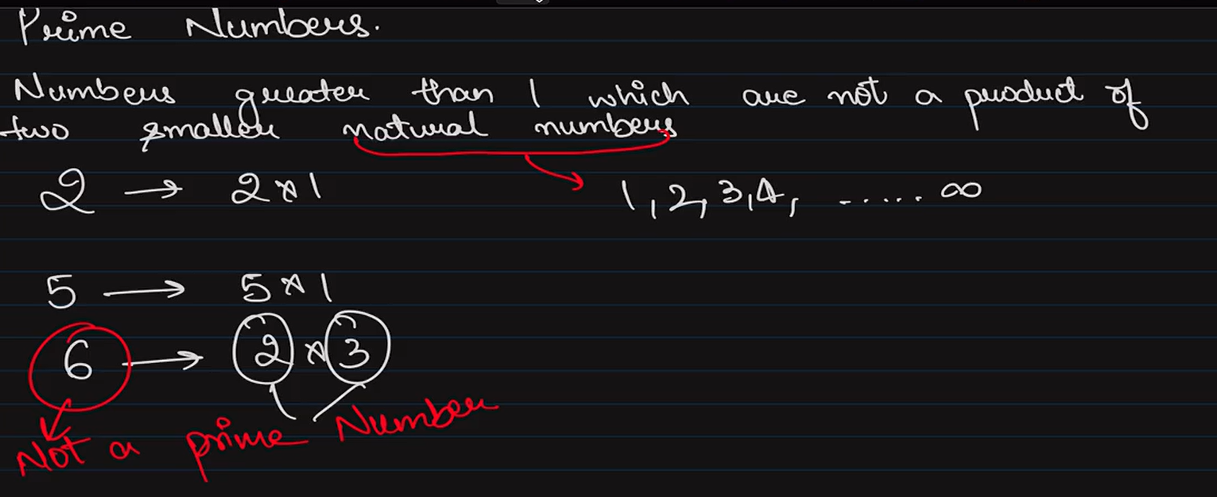 Prime Numbers.
Numbers greater than 1 which are not a product of
two smaller natural numbers
2 → 2 * 1
1, 2, 3, 4, ...... ∞
5 → 5 * 1
6 → 2 * 3
Not a prime Number